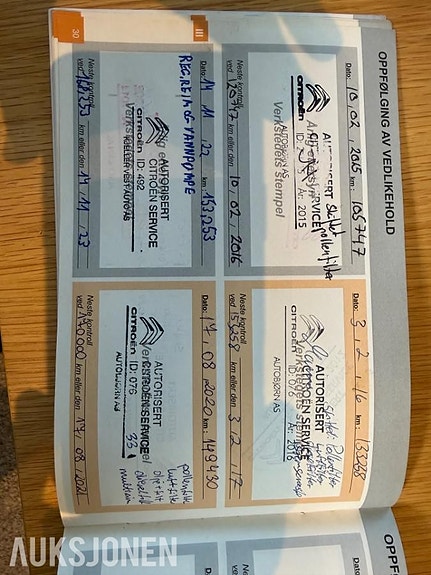 OPPFØLGING AV VEDLIKEHOLD
Dato: 10, 02, 2015 km: 105747
AUTORISERT
CITROËN SERVICE
År: 2015
AUTOBJØRN AS
Verksteds Stempel
Skiftet
pollenfilter
Neste kontroll
ved 120747 km eller den 10, 02, 2016
Dato: 3, 2, 16 km: 135258
AUTORISERT
CITROËN SERVICE
CITROËN ID: 076
År: 2016
AUTOBJØRN AS
Skiftet: Pollenfilter
Luftfilter
Neste kontroll
ved 155258 km eller den 3, 2, 17
Dato: 14, 11, 22 km: 153253
REG.REIM OG VANNPUMPE
AUTORISERT
CITROËN SERVICE
CITROËN ID: 492
Neste kontroll
ved km eller den 14, 11, 23
Dato: 17, 08, 2020 km: 149430
AUTORISERT
CITROËN SERVICE
CITROËN ID: 076
AUTOBJØRN AS
33
pollenfilter
luftfilter
oljefilt
Neste kontroll
ved 170000 km eller den 17, 08, 2021
30
III
OPPF
AUKSJONEN